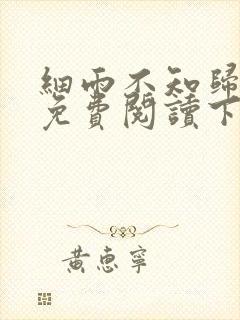 細雨不知歸
免費閱讀下
黃惠寧